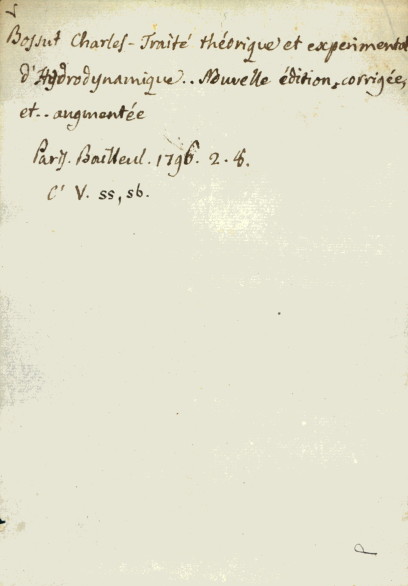 Bossut Charles - Traité théorique et experimental
d'Hydrodynamique.. Nouvelle édition, corrigée,
et.. augmentée
Paris. Bailleul. 1796. 2. 8.
C' V. ss, sb.